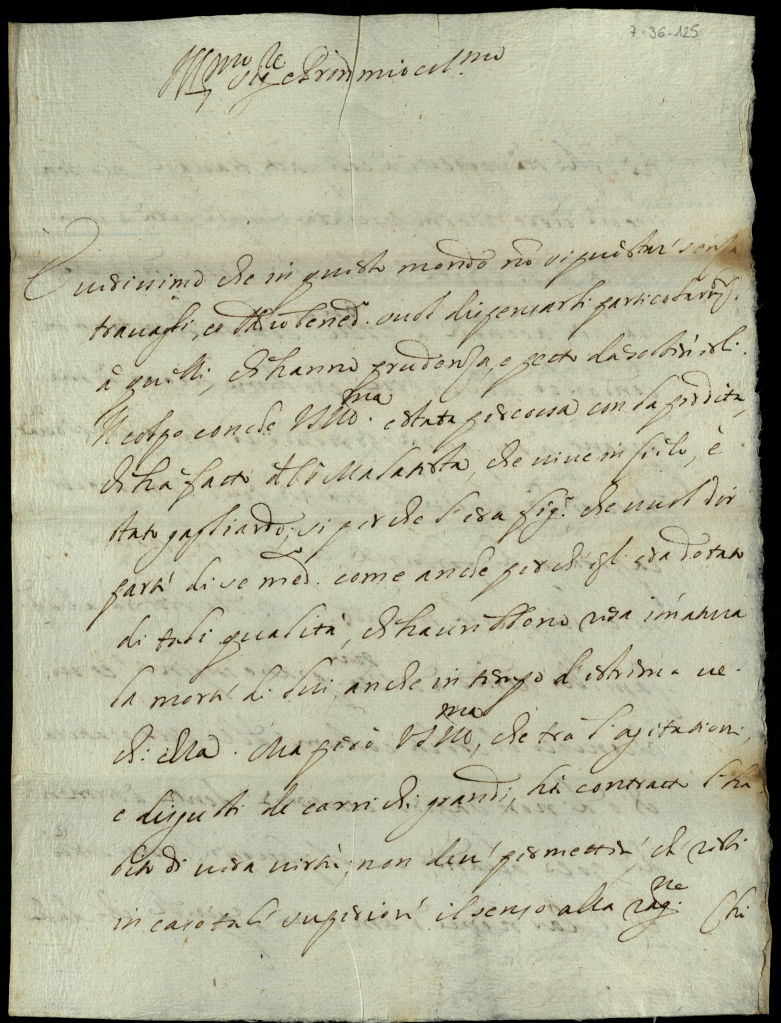 7-36-125
Ill.mo Sig.re e Pron mio col.mo
Verissimo che in questo mondo nō si può star' senza
travagli, et Iddio bened.o vuol dispensarli particolarm.te
à quelli, ch'hanno prudenza, e petto da soffrirli.
Il colpo con che V S Ill.ma è stata percossa con la perdita,
ch'hà fatto del Malatesta, che vive in Cielo, è
stato gagliardo; sì perche l'era fig.o che vuol dir
parte di se med.o come anche perch'egl'era dotato
di tali qualità, ch'havriabbono resa immatura
la morte di lui anche in tempo d'estrema vec
chiezza. Ma però V S Ill.ma, che trà l'agitationi,
e disgusti de carrichi grandi, hà contratto l'ha
bito di vera virtù, non deve permetter, che resti
in caso tale superiore il senso alla rag.ne Chi